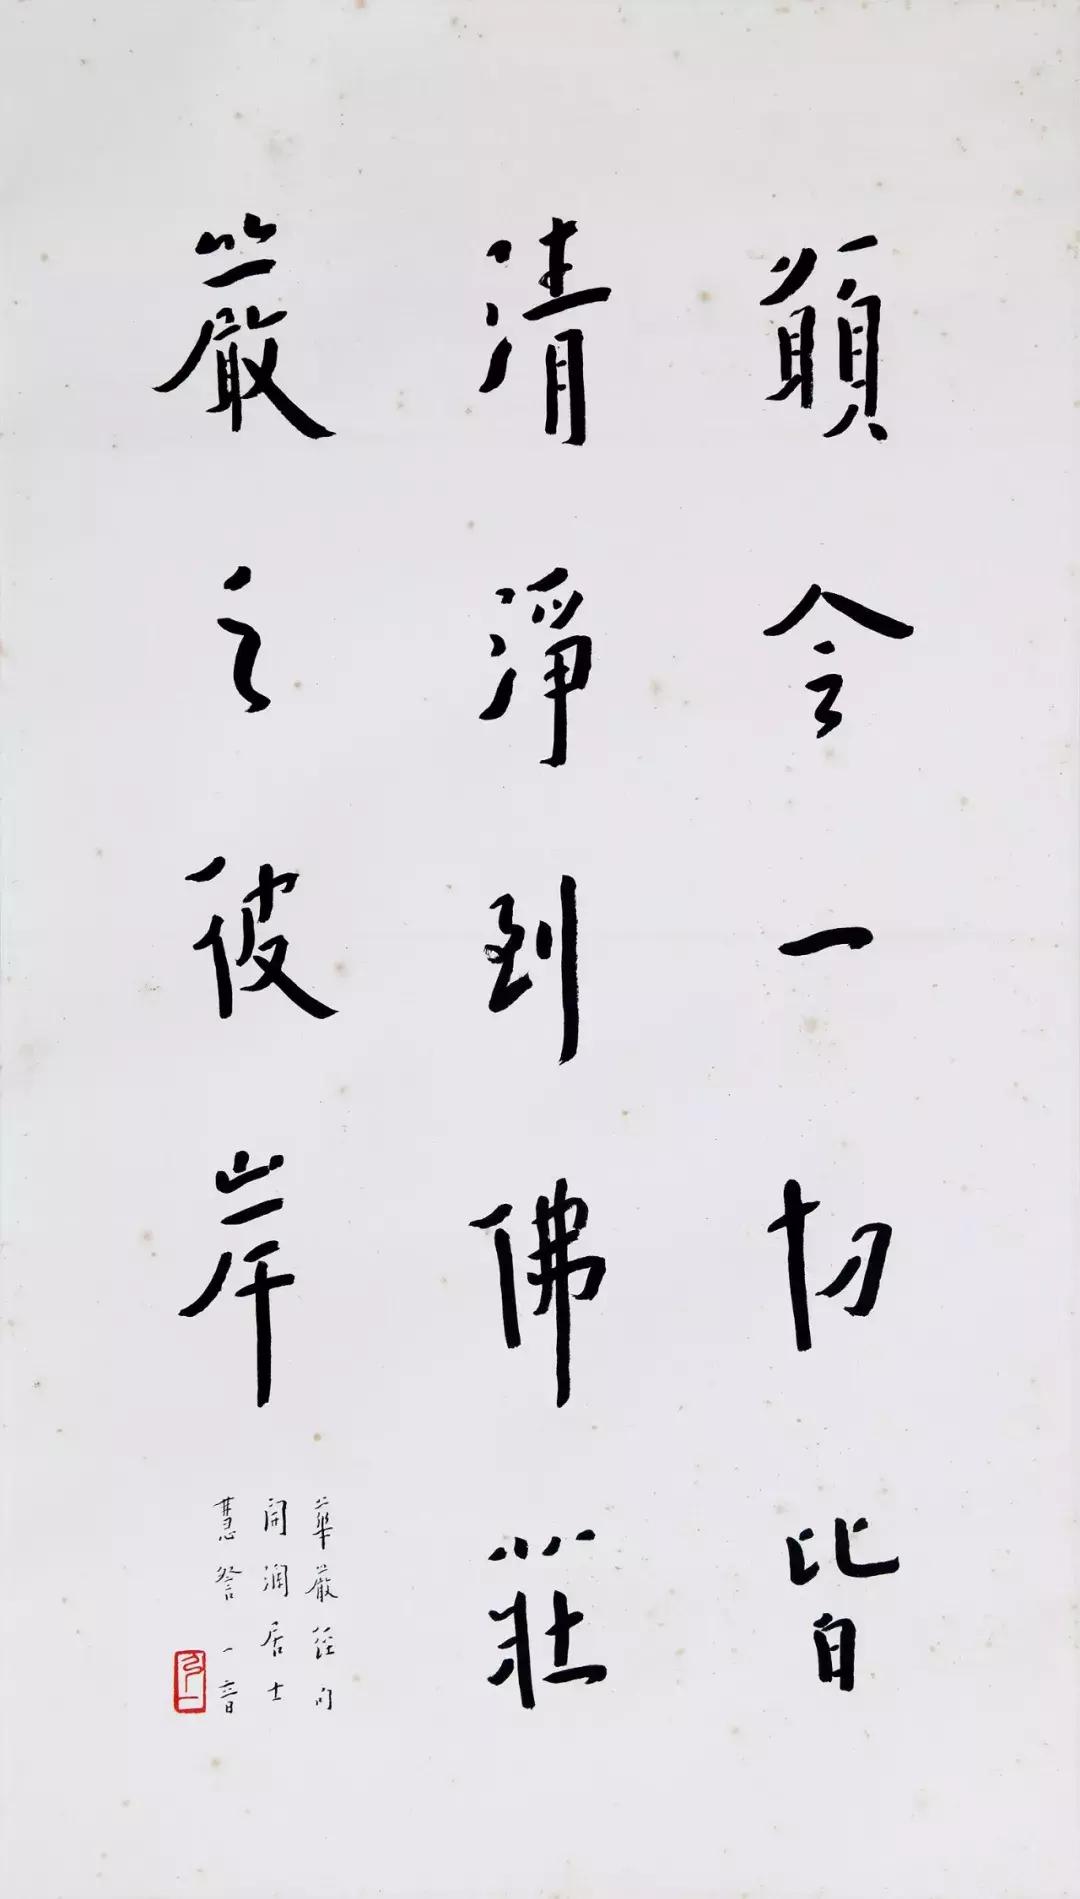 願令一切皆
清淨到佛莊
嚴之彼岸
華嚴經句
開潤居士
慧詧 一音
弘一